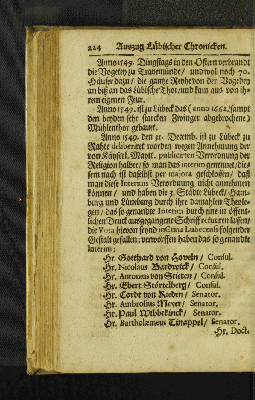 224 Auszug Lübischer Chronicken.
Anno 1549. Dingstags in den Ostern verbrandt
die Vogetey zu Travemünde / und wol noch 70.
Häuser dazu / die gantze Rehe von der Vogedey
an biß an das Lübische Thor / und kam aus von ih-
rem eigenen Feur.
Anno 1549. ist zu Lübeck das (anno 1662. sampt
den beyden sehr starcken Zwinger abgebrochene)
Mühlenthor gebauet.
Anno 1549. den 31. Decemb. ist zu Lübeck zu
Rahte deliberiret worden wegen Annehmung der
von Käyserl. Maytt. publicirten Verordnung der
Religion halber / so man das interim genennet / dies-
sem nach ist daselbst per majora geschlossen / daß
man diese Interims Verordnung nicht annehmen
könne / und haben die 3. Städte Lübeck / Ham-
burg und Lüneburg durch ihre damahlen Theolo-
gen / das so genandte Interim durch eine in öffent-
lichen Druck ausgegangene Schrifft refutiren lassen /
die Vota hievon seynd in Curia Lubecensi folgender
Gestalt gefallen: verworffen haben das so genandte
Interim;
Hr. Gotthard von Hoveln / Consul.
Hr. Nicolaus Bardwick / Consul.
Hr. Antonius von Stieten / Consul.
Hr. Ebert Störtelberg / Consul.
Hr. Cordt von Rieden / Senator.
Hr. Ambrosius Meyer / Senator.
Hr. Paul Wibbekinck / Senator.
Hr. Bartholomeus Tinappel / Senator.
Hr. Doct.